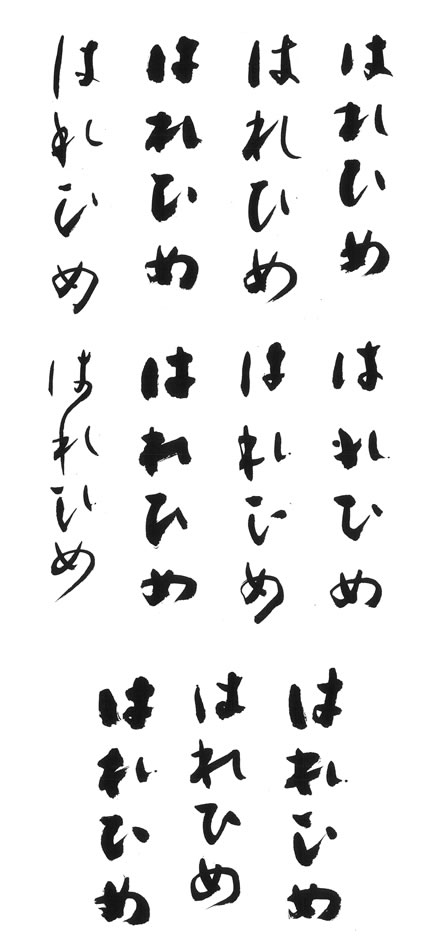 はれひめ
はれひめ
はれひめ
はれひめ
はれひめ
はれひめ
はれひめ
はれひめ
はれひめ
はれひめ
はれひめ